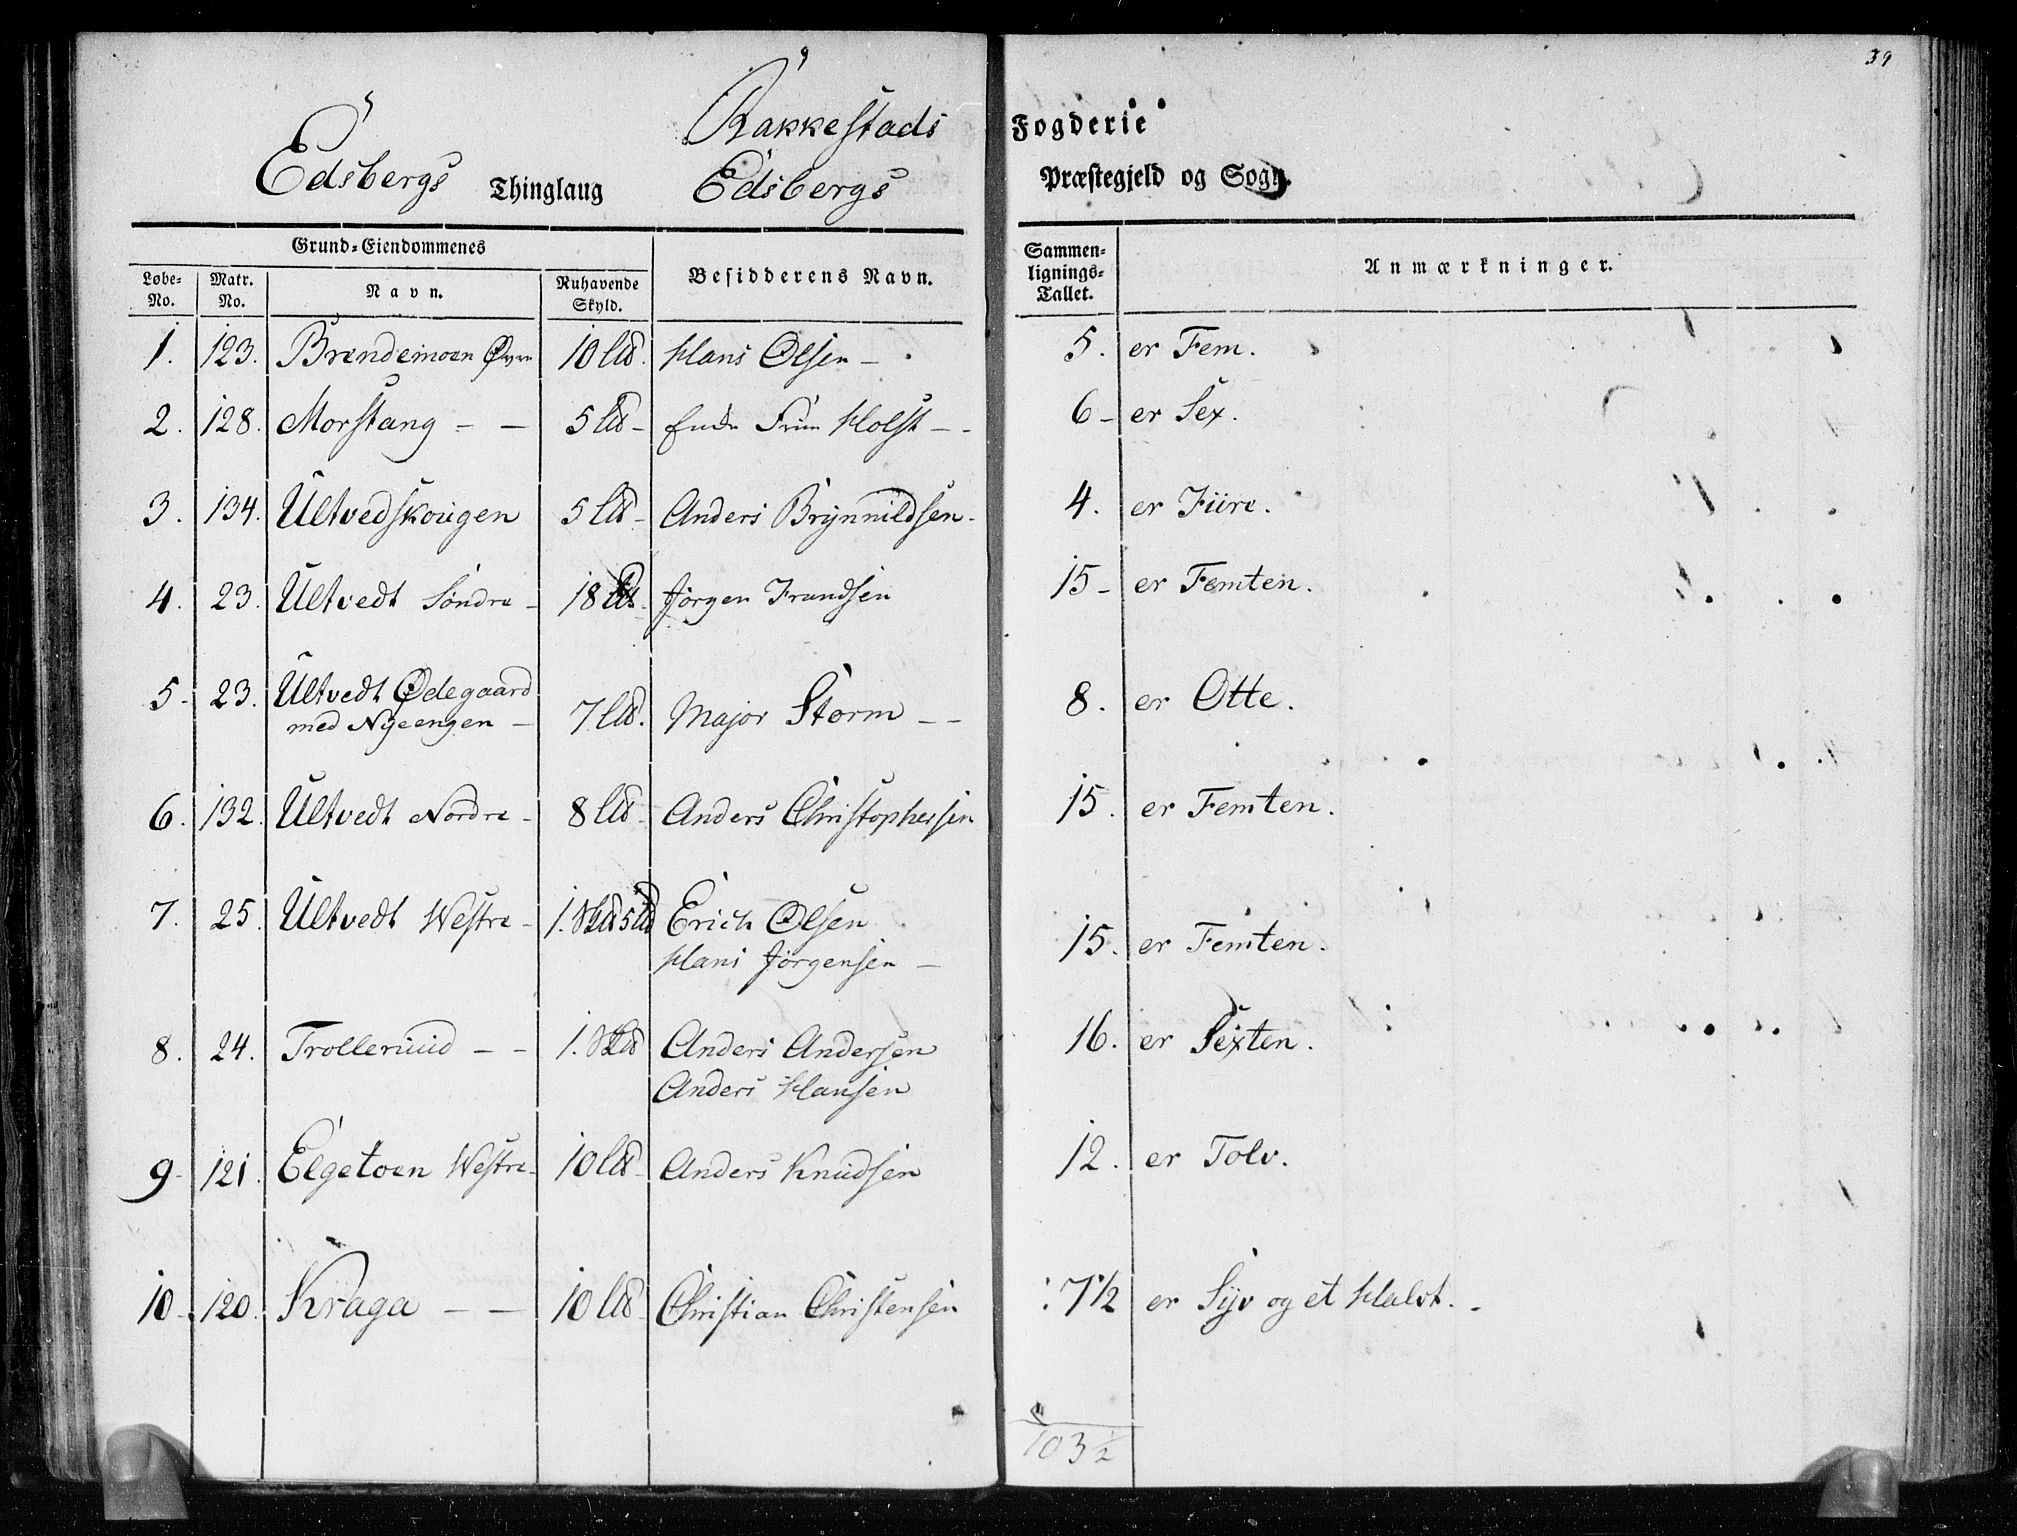 39
Rakkestads Fogderie
Edsbergs Thinglaug Edsbergs Præstegjeld og Sogn.
Grund-Eiendommenes
Løbe-No. Matr. No. Navn. Ruhavende Skyld. Besidderens Navn. Sammenlignings-Tallet. Anmærkninger.
1. 123. Brendemoen Øvre 10 Ld. Hans Olsen - 5. er Fem.
2. 128. Morstang - - 5 Ld - Holst - - 6 - er Sex.
3. 134. Ultvedskougen 5 Ld - Anders Brynnildsen - 4. er Fiire.
4. 23. Ultvedt Søndre - 18 Ld - Jørgen Frandsen 15 - er Femten.
5 - 23. Ultvedt Ødegaard
med Nyeengen - 7 Ld. Major Storm - - 8. er Otte.
6. 132. Ultvedt Nordre - 8 Ld - Anders Christophersen 15. er Femten.
7. 25. Ultvedt Westre - 1. Skd 5 Ld Erich Olsen
Hans Jørgensen - 15. er Femten.
8. 24. Trolleruud - - 1. Skd Anders Andersen 16. er Sexten.
Anders Hansen
9 - 121. Elgetoen Westre - 10 Ld - Anders Knudsen 12. er Tolv.
10 - 120. Kraga - - 10 Ld - Christian Christensen 7 1/2 er Syv og et Halvt. -
103 1/2